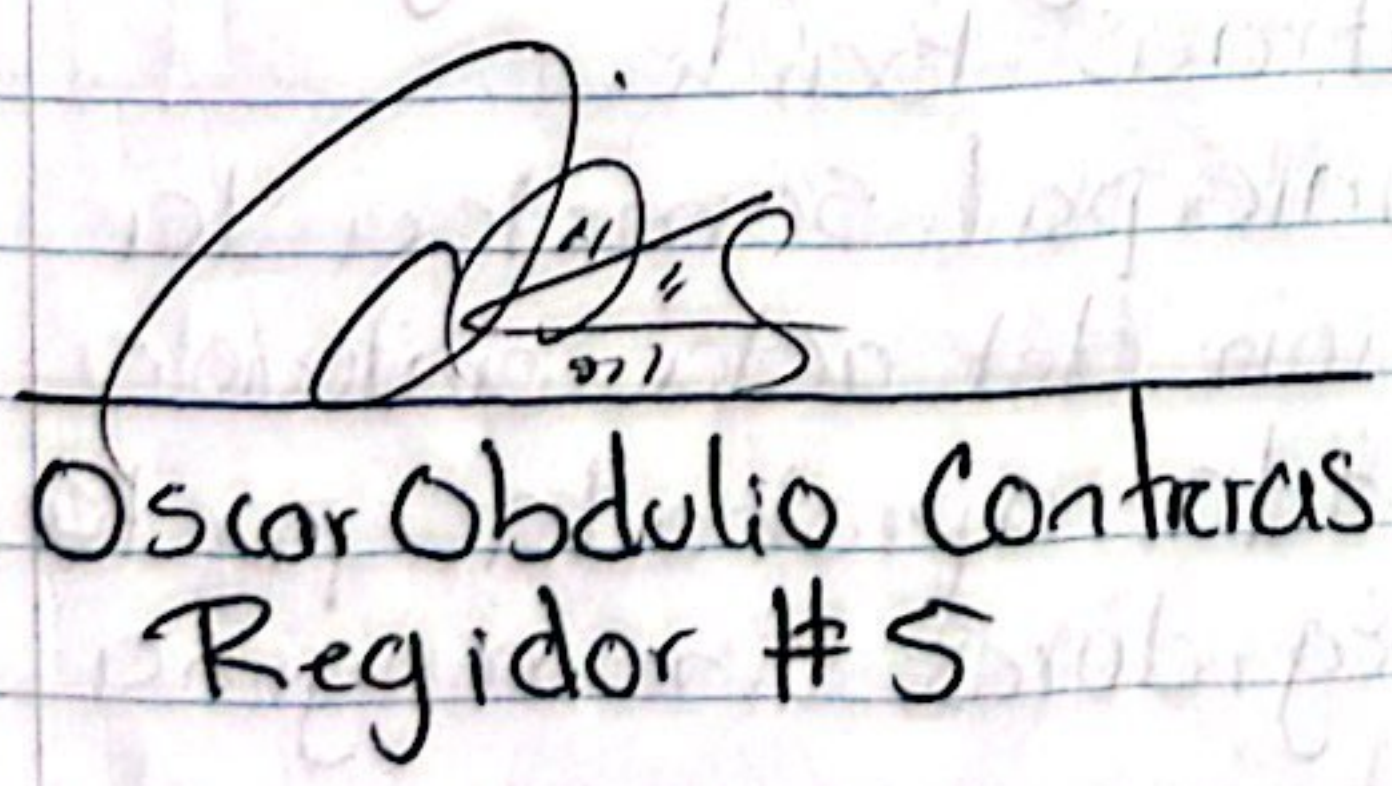 Oscar Obdulio Contreras
Regidor #5